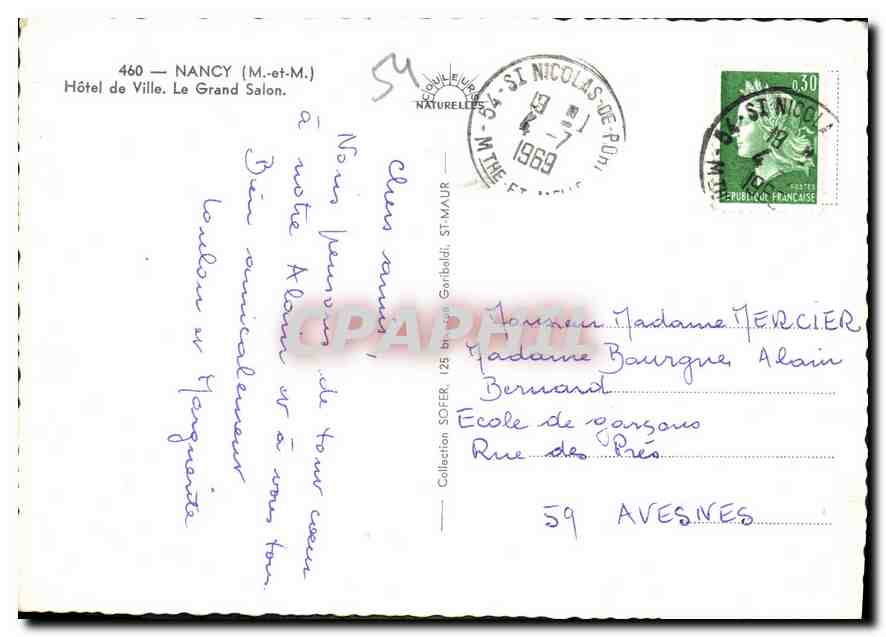 460 — NANCY (M.-et-M.)
Hôtel de Ville. Le Grand Salon.
54
COULEURS
NATURELLES
54 - ST NICOLAS-DE-PORT
19 H
4 - 7
1969
MTHE-ET-MELLE
0,30
POSTES
REPUBLIQUE FRANÇAISE
54 - ST NICOLA
19 H
4
196
Chers amis,
Nous pensons de tout cœur
à notre Alain et à vous tous.
Bien amicalement
et Marguerite
Collection SOFER, 125 bis, rue Garibaldi, ST-MAUR
CPAPHIL
Monsieur Madame MERCIER
Madame Bourgne, Alain
Bernard
Ecole de garçons
Rue des Prés
59 AVESNES